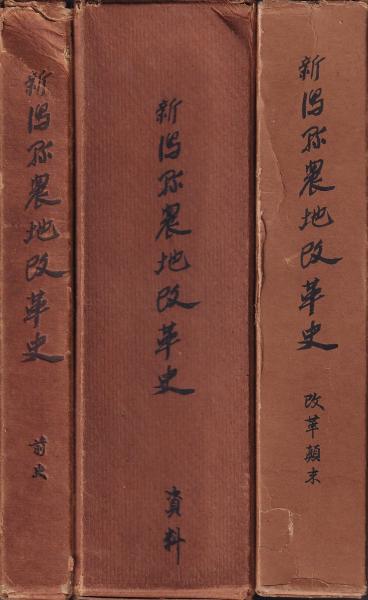 新潟県農地改革史
前史
新潟県農地改革史
資料
新潟県農地改革史
改革顛末